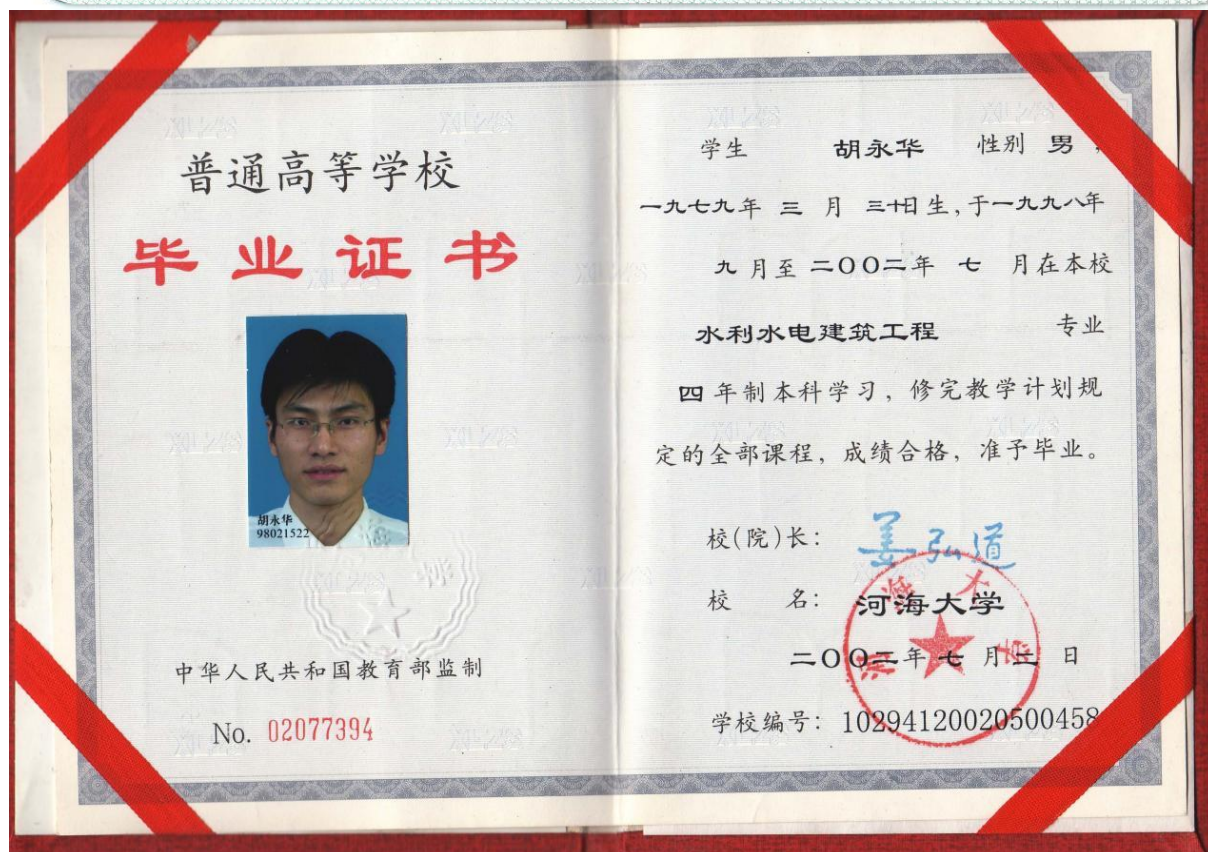 普通高等学校
毕业证书
胡永华
98021522
中华人民共和国教育部监制
No. 02077394
学生 胡永华 性别 男,
一九七九年 三 月 三十日生,于一九九八年
九 月至 二〇〇二年 七 月在本校
水利水电建筑工程 专业
四 年制本科学习，修完教学计划规
定的全部课程，成绩合格，准予毕业。
校(院)长: 姜弘道
校 名: 河海大学
二〇〇二年 七 月 日
学校编号: 10294120020500458